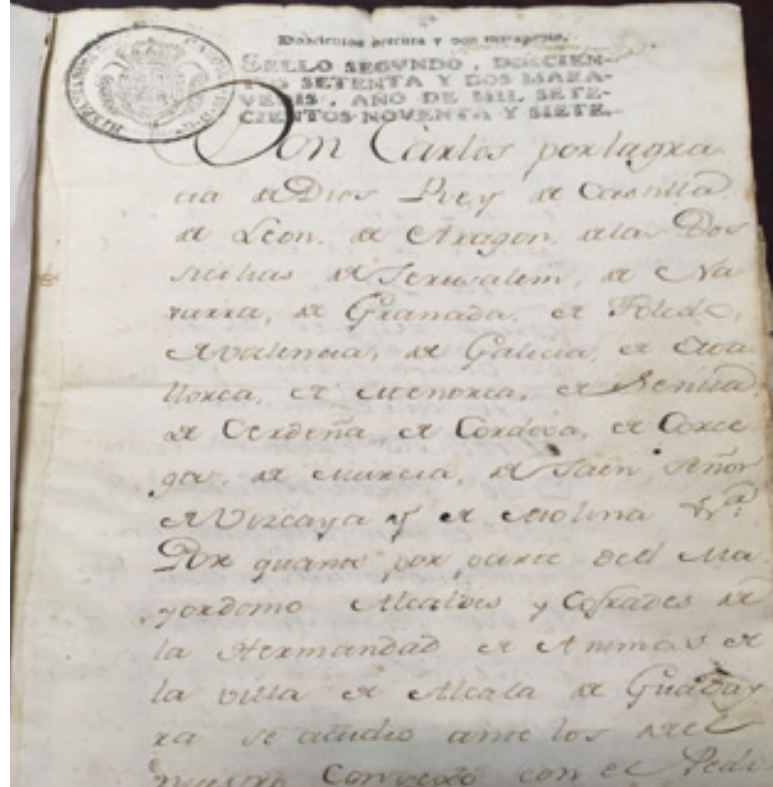 Doscientos setenta y dos maravedis.
SELLO SEGVNDO, DOSCIEN-
TOS SETENTA Y DOS MARA-
VEDIS, AÑO DE MIL SETE-
CIENTOS NOVENTA Y SIETE.
Don Carlos por la gra
cia de Dios Rey de Castilla
de Leon, de Aragon, de las Dos
Sicilias de Jerusalem, de Na
varra, de Granada, de Toledo,
de Valencia, de Galicia, de Ma
llorca, de Menorca, de Sevilla,
de Cerdeña, de Cordova, de Corce
ga, de Murcia, de Jaen, Señor
de Vizcaya y de Molina &ª
Por quanto por parte del Ma
yordomo Alcaldes y Cofrades de
la Hermandad de Animas de
la villa de Alcala de Guaday
ra se acudio ante los del
nuestro Consejo con el Pedi